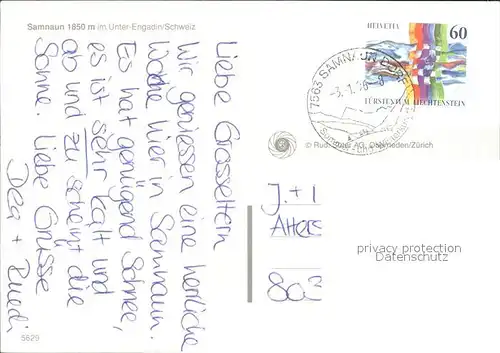 Samnaun 1850 m im Unter-Engadin/Schweiz
Liebe Grosseltern
Wir geniessen eine herrliche
Woche hier in Samnaun.
Es hat genügend Schnee,
es ist sehr kalt und
ab und zu scheint die
Sonne. Liebe Grüsse
Dea + Ruedi
5629
HELVETIA 60
FÜRSTENTUM LIECHTENSTEIN
7563 SAMNAUN DORF
© Rud. Suter AG, Oberrieden/Zürich
J. + I
privacy protection
Datenschutz